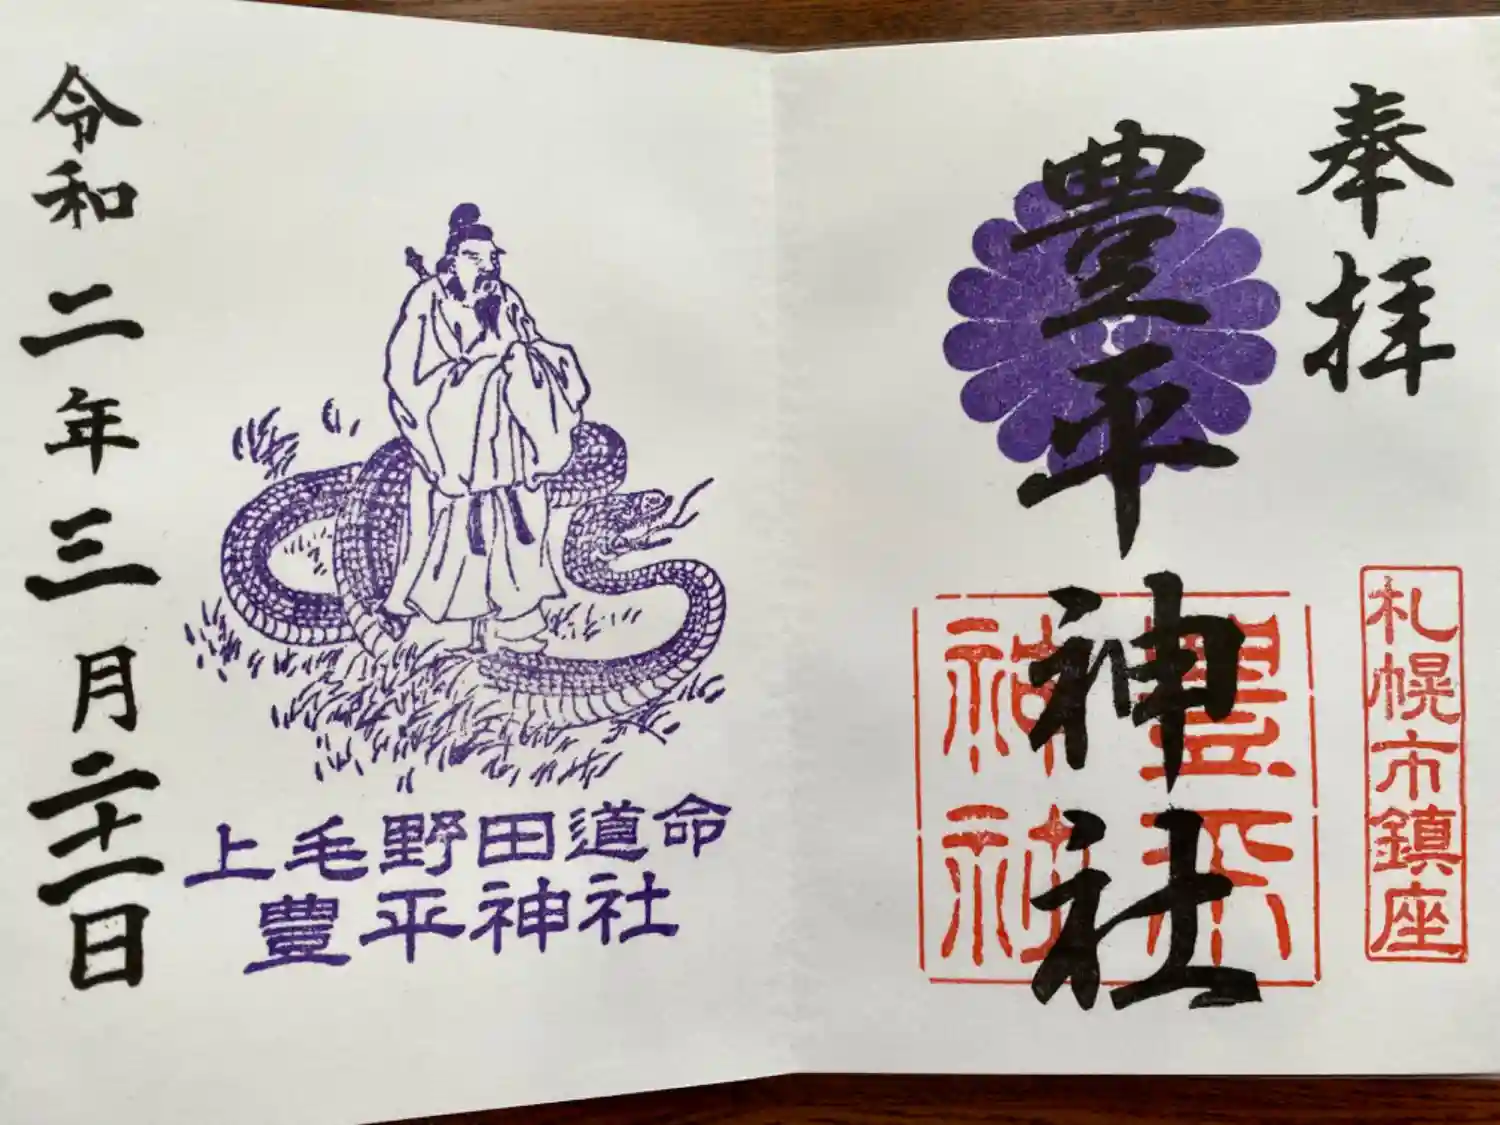 奉拝
豊平神社
札幌市鎮座
豊平神社
上毛野田道命
豊平神社
令和二年三月二十一日